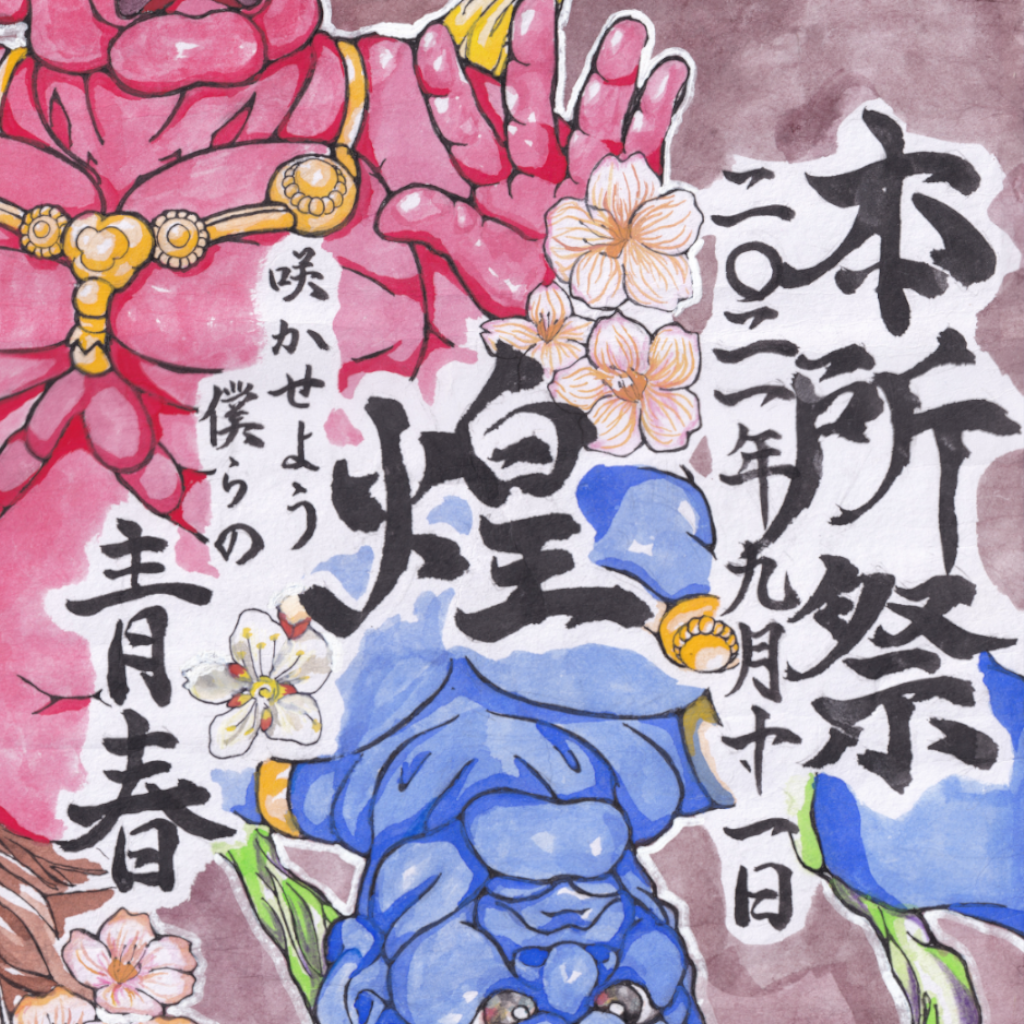 本所祭
二〇二一年九月十一日
煌
咲かせよう
僕らの
青春